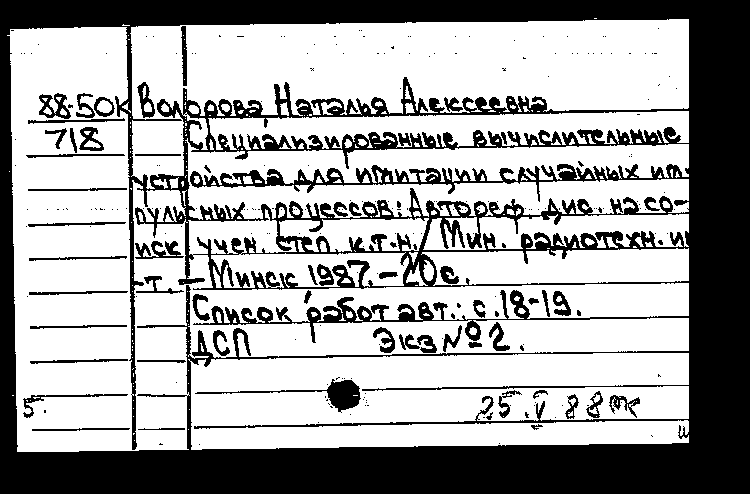 88-50К Волорова Наталья Алексеевна
718 Специализированные вычислительные
устройства для имитации случайных им-
пульсных процессов: Автореф. дис. на со-
иск. учен. степ. к.т.н. / Мин. радиотехн. ин
-т. - Минск 1987. - 20с.
Список работ авт.: с. 18-19.
ДСП Экз № 2.
5. 25.V 88